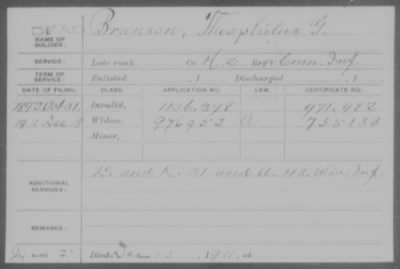 DEAD
NAME OF SOLDIER: Brunson, Theophilus G.
SERVICE: Late rank, Co H, 2 Reg't Conn. Inf.
TERM OF SERVICE: Enlisted , 1 Discharged , 1
DATE OF FILING. CLASS. APPLICATION NO. LAW. CERTIFICATE NO.
1892 Oct 31. Invalid, 971.982
Dec Widow, 976953 735133
Minor,
ADDITIONAL SERVICES: D. and K. 31 and A. 43. Wis. Inf.
REMARKS:
Died 191 , at